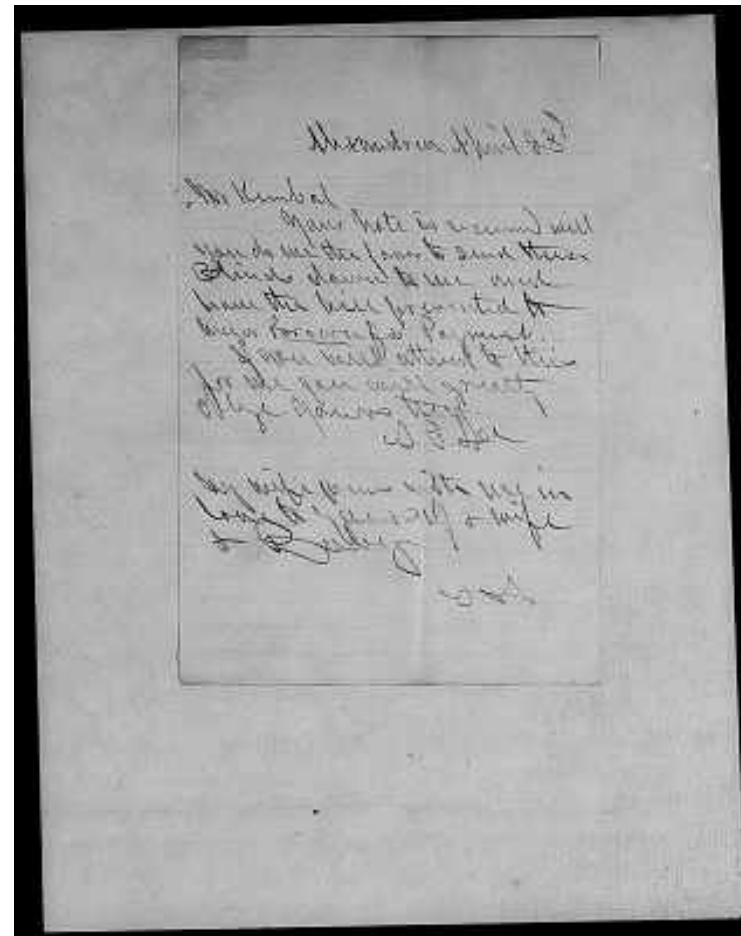 Alexandria April 23d
Mr Kimbal
Your note is received will
you do me the favor to send these
Blinds down to me and
have the bill presented to
Major for Payment.
If you will attend to this
for me you will greatly
oblige yours truly
My wife joins with me in
love to yourself & wife
&